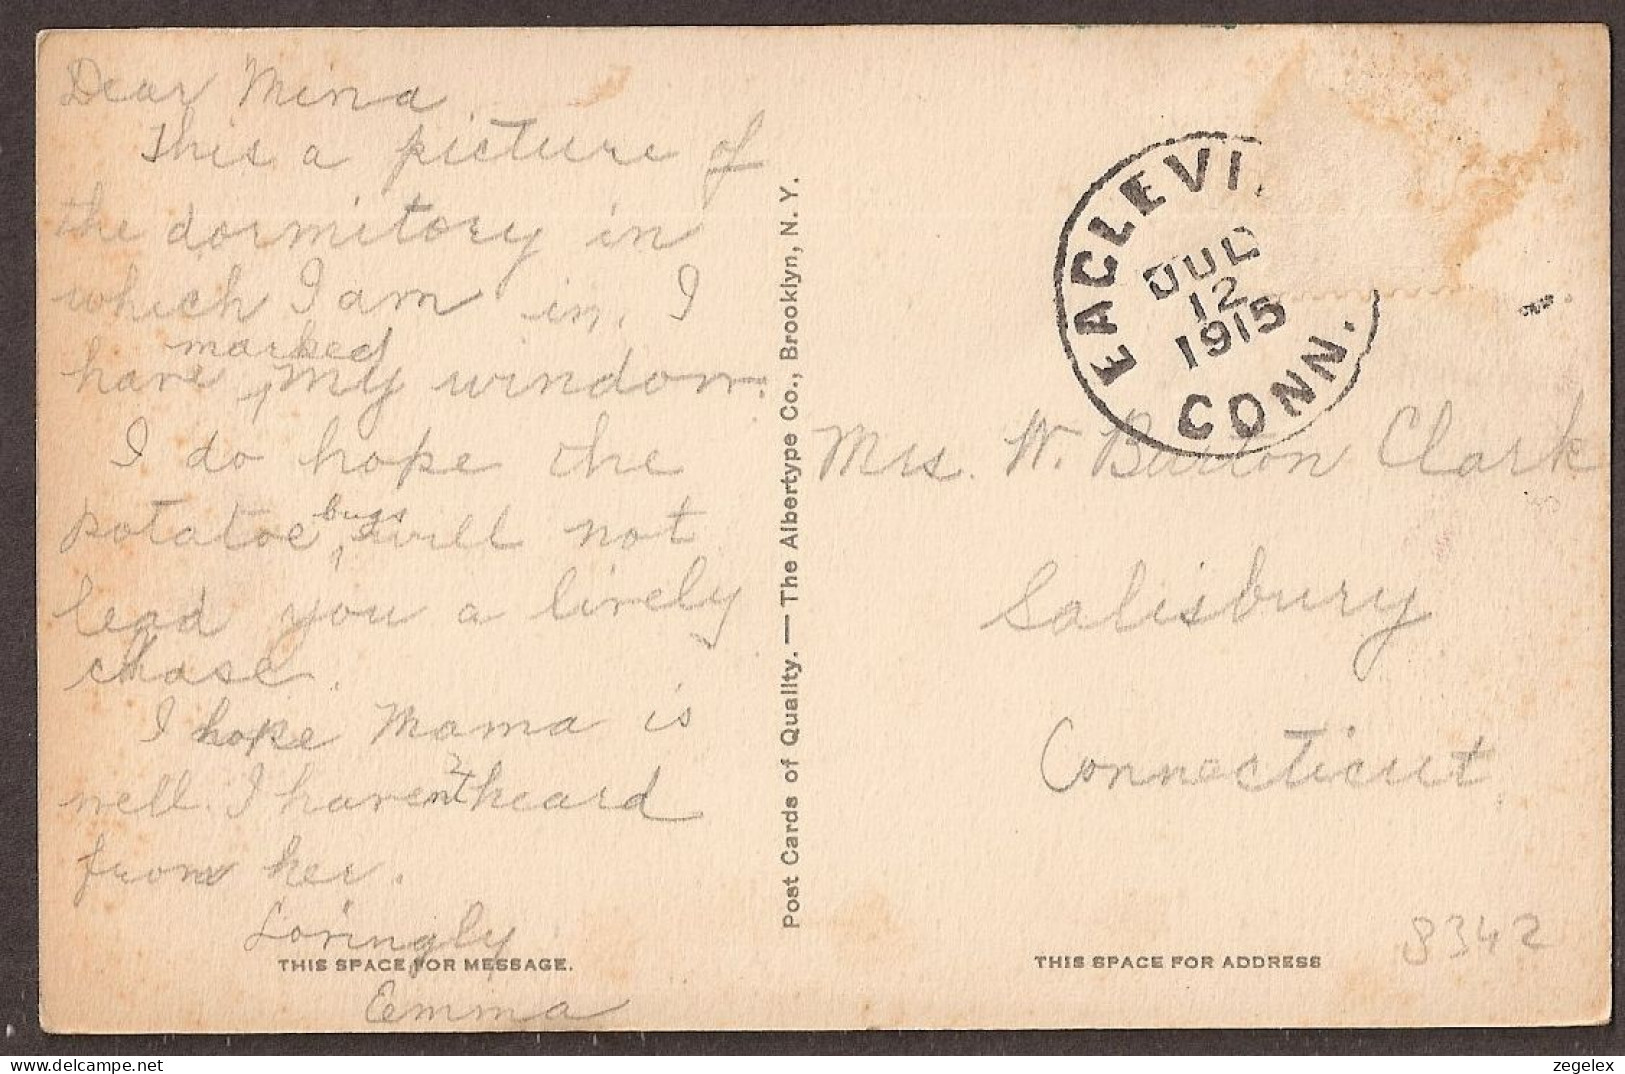 Dear Mina
This a picture of
the dormitory in
which I am in. I
marked
have ^ my window.
I do hope the
bugs
potatoe ^ will not
lead you a lively
chase.
I hope Mama is
well. I haven't heard
from her.
Lovingly
THIS SPACE FOR MESSAGE.
Emma
Post Cards of Quality. — The Albertype Co., Brooklyn, N. Y.
EAGLEVI
JUL
12
1915
CONN.
Mrs. W. Burton Clark
Salisbury
Connecticut.
8342
THIS SPACE FOR ADDRESS
zegelex
delcampe.net